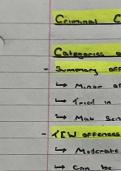 Criminal C
Categories o
- Summary off
↳ Minor of
↳ Tried in
↳ Max Sen
- TEW offences
↳ Moderate
↳ Can be